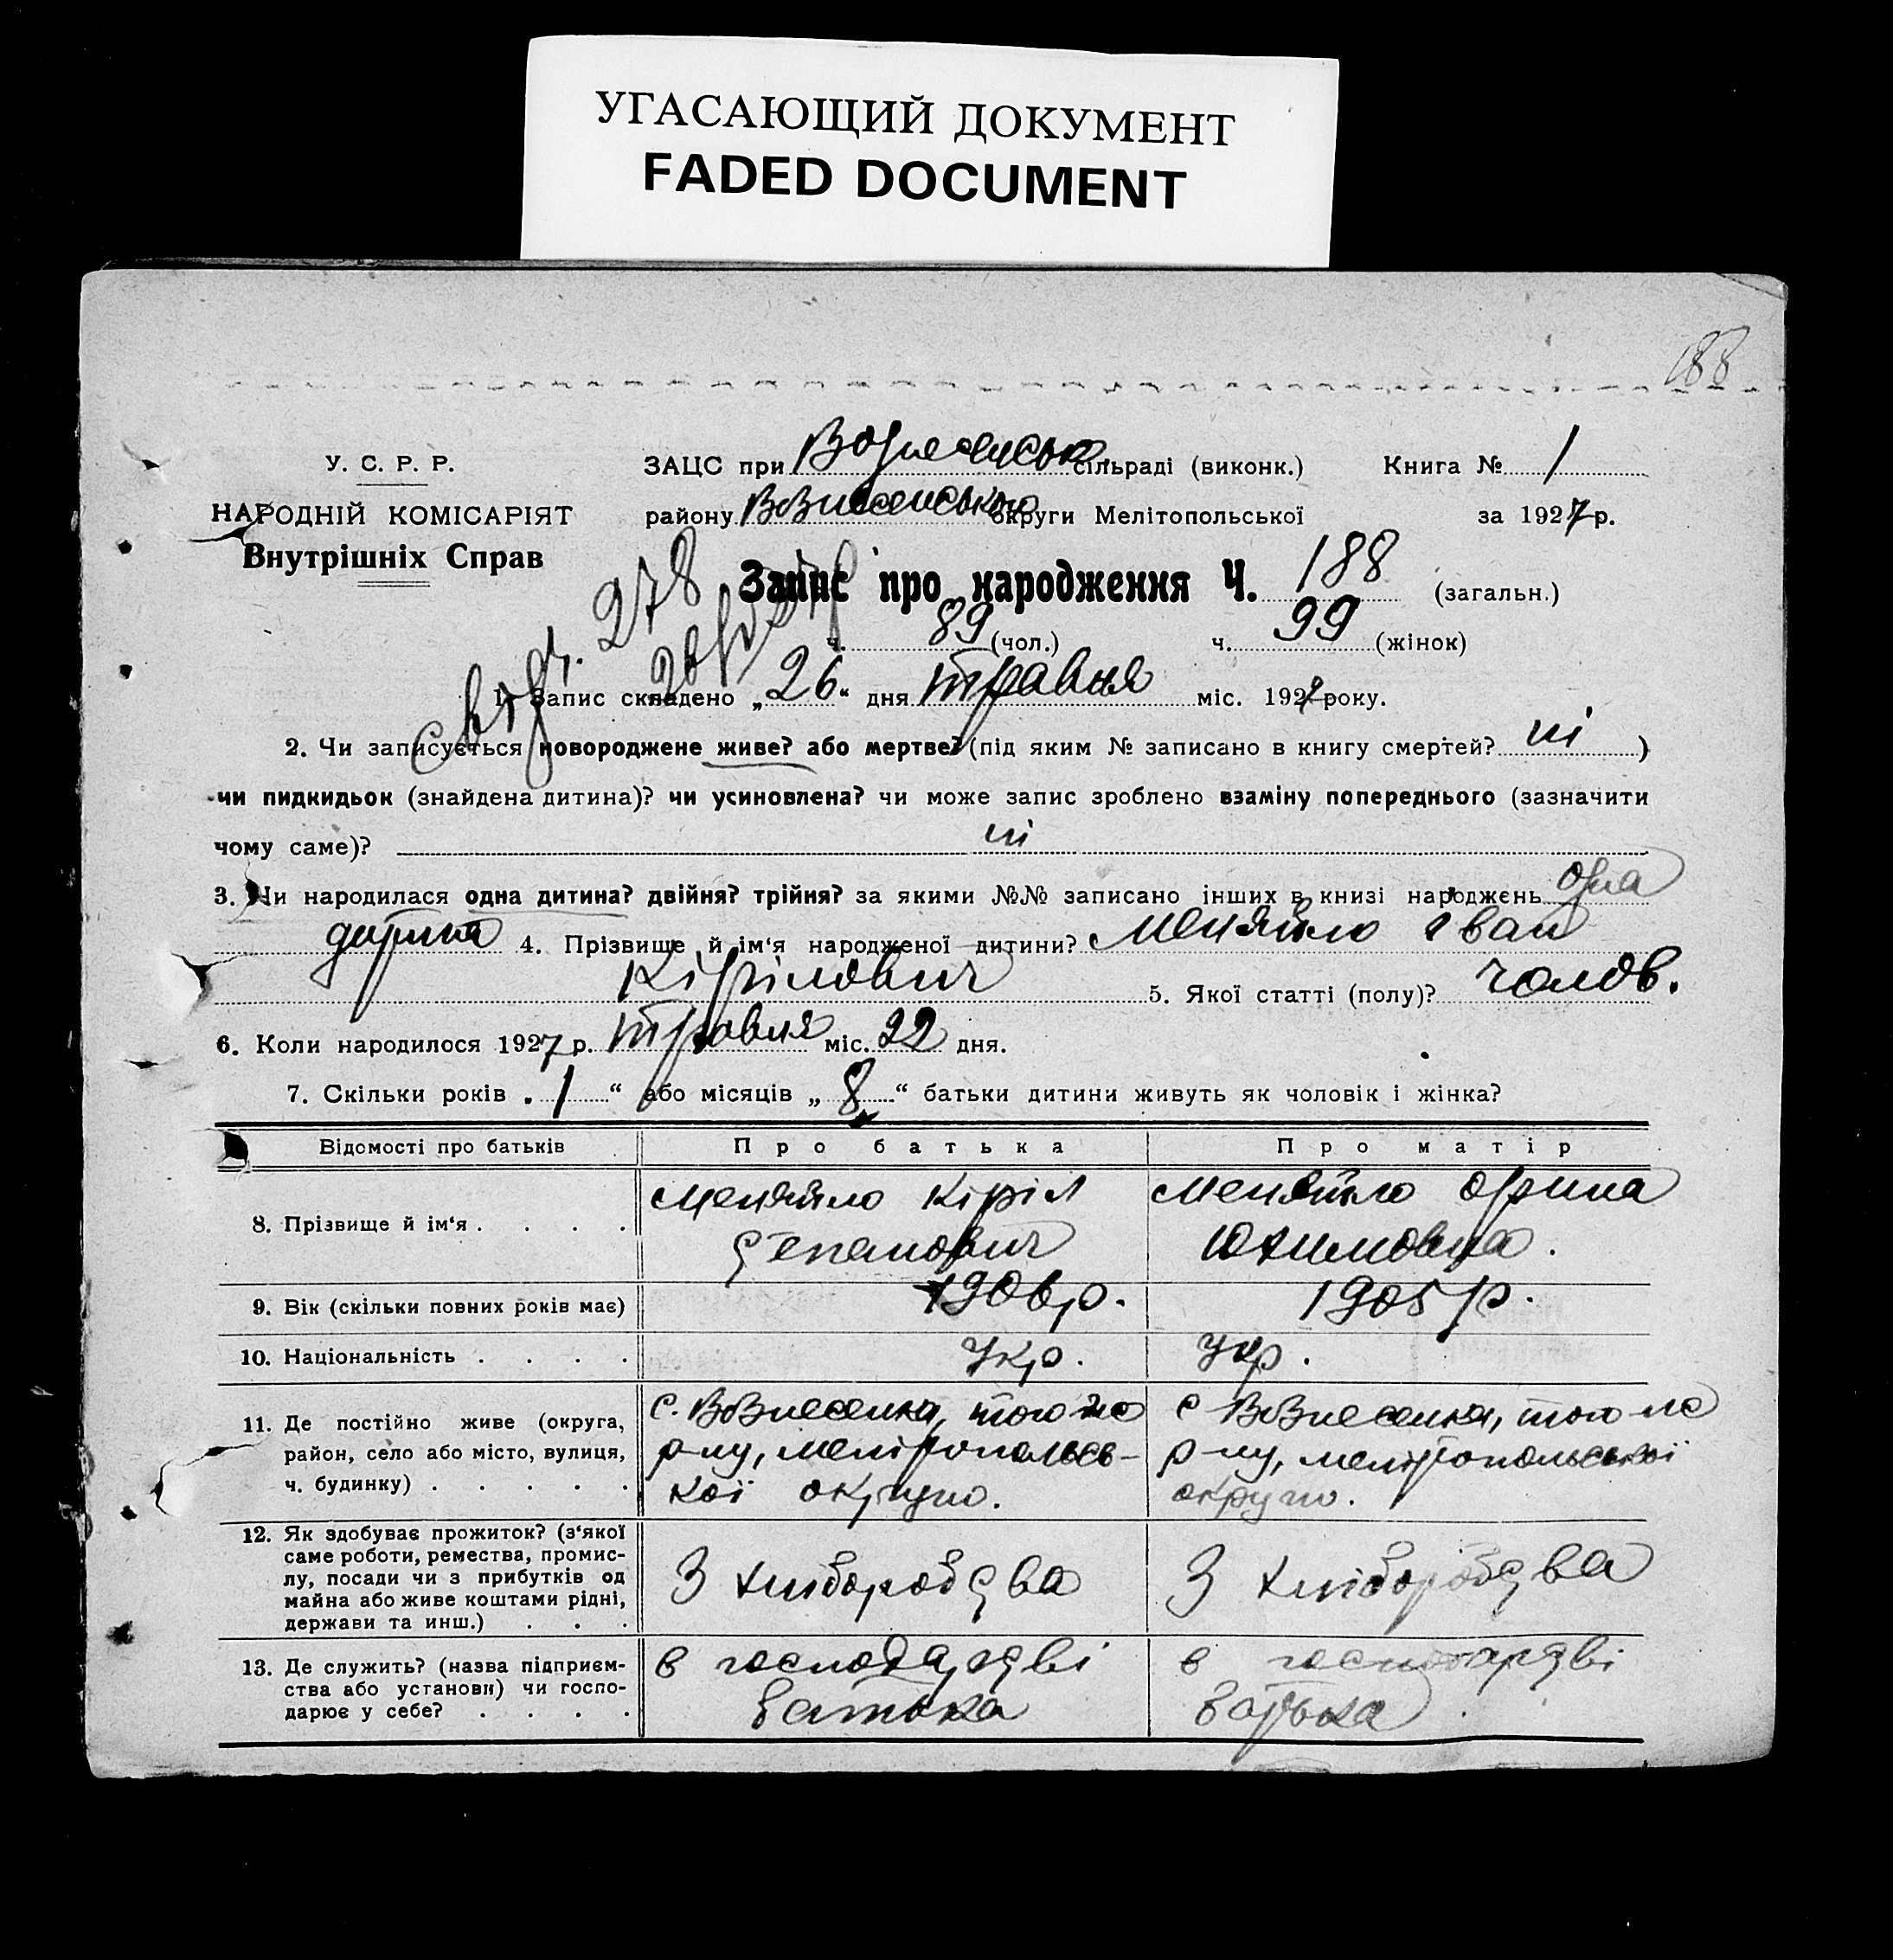 УГАСАЮЩИЙ ДОКУМЕНТ
FADED DOCUMENT
188
У. С. Р. Р.
НАРОДНІЙ КОМІСАРІЯТ
Внутрішніх Справ
ЗАЦС при Вознесенськ. сільраді (виконк.) Книга № 1
району Вознесенського округи Мелітопольської за 1927 р.
Запис про народження Ч. 188 (загальн.)
ч. 89 (чол.) ч. 99 (жінок)
278
1. Запис складено „26“ дня травня міс. 1927 року.
2. Чи записується новороджене живе? або мертве? (під яким № записано в книгу смертей? ні )
чи пидкидьок (знайдена дитина)? чи усиновлена? чи може запис зроблено взаміну попереднього (зазначити
чому саме)? ні
3. Чи народилася одна дитина? двійня? трійня? за якими №№ записано інших в книзі народжень одна
дитина 4. Прізвище й ім‘я народженої дитини? Меняйло Іван
Кірілович 5. Якої статті (полу)? чолов.
6. Коли народилося 1927 р. травня міс. 22 дня.
7. Скільки років „1“ або місяців „8“ батьки дитини живуть як чоловік і жінка?
Відомості про батьків Про батька Про матір
8. Прізвище й ім‘я . . . . Меняйло Кіріл Меняйло Орина
Степанович Юхимовна.
9. Вік (скільки повних років має) 1906 р. 1905 р.
10. Національність . . . . Укр. Укр.
11. Де постійно живе (округа, с. Вознесенка, того же с Вознесенка, того же
район, село або місто, вулиця, р-ну, мелітопольсь- р-ну, мелітопольської
ч. будинку) . . . . . кої округи. округи.
12. Як здобуває прожиток? (з‘якої
саме роботи, ремества, промис-
лу, посади чи з прибутків од З хліборобства З хліборобства
майна або живе коштами рідні,
держави та инш.) . . .
13. Де служить? (назва підприєм- в господарстві в господарстві
ства або установи) чи госпо- батька батька
дарює у себе? . . . .